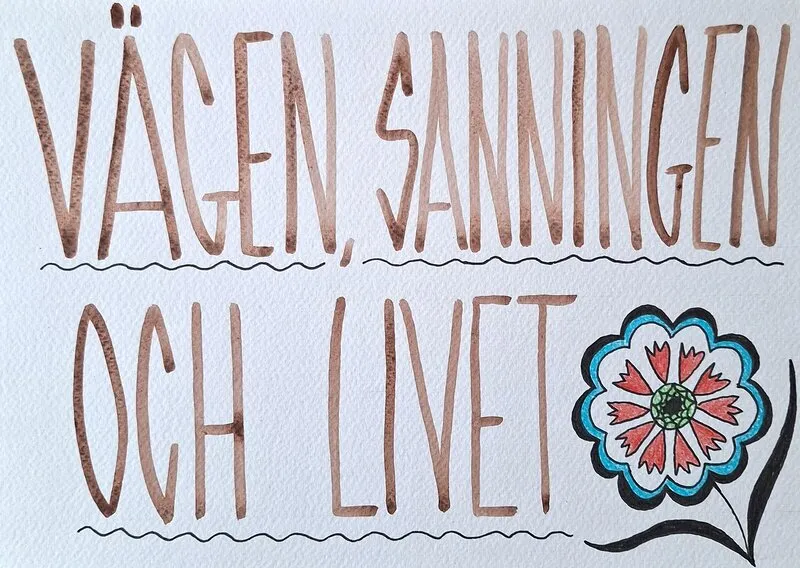 VÄGEN, SANNINGEN
OCH LIVET